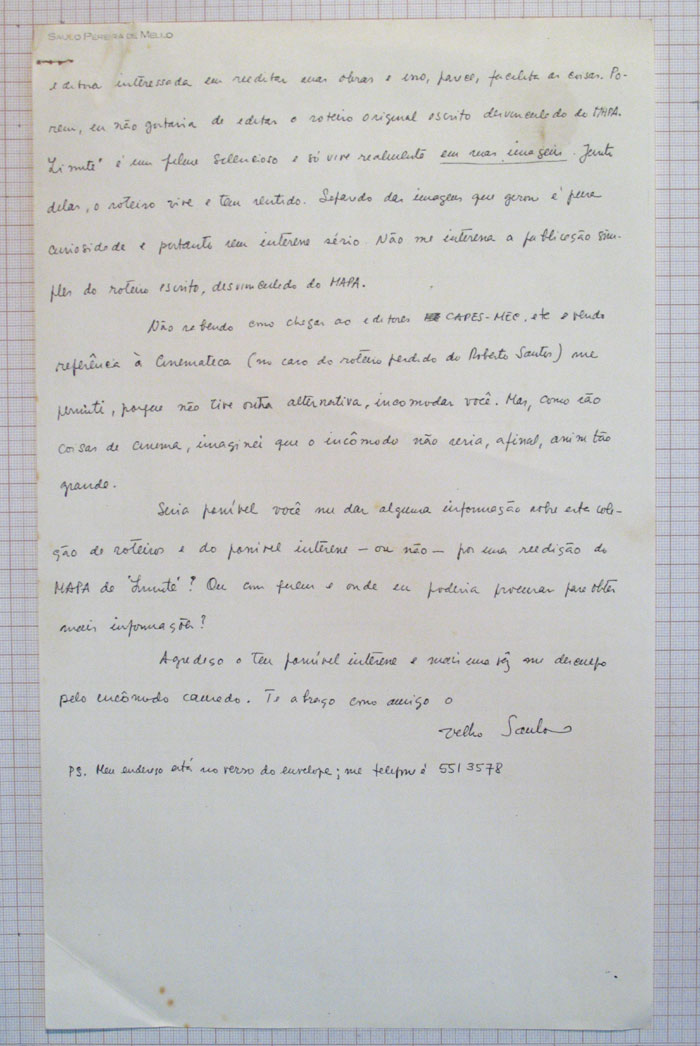 SAULO PEREIRA DE MELLO
editora interessada em reeditar suas obras e isso, parece, facilita as coisas. Po-
rem, eu não gostaria de editar o roteiro original escrito desvinculado do MAPA.
"Limite" é um filme silencioso e só vive realmente em suas imagens. Junto
delas, o roteiro vive e tem sentido. Separado das imagens que gerou é pura
curiosidade e portanto sem interesse sério. Não me interessa a publicação sim-
ples do roteiro escrito, desvinculado do MAPA.
Não sabendo como chegar ao editores CAPES-MEC. etc e vendo
referência à Cinemateca (no caso do roteiro perdido do Roberto Santos) me
permiti, porque não tive outra alternativa, incomodar você. Mas, como são
coisas de cinema, imaginei que o incômodo não seria, afinal, assim tão
grande.
Seria possível você me dar alguma informação sobre esta cole-
ção de roteiros e do possível interesse — ou não — por uma reedição do
MAPA de "Limite"? Ou com quem e onde eu poderia procurar para obter
mais informações?
Agradeço o teu possível interesse e mais uma vêz me desculpo
pelo incômodo causado. Te abraço como amigo o
velho Saulo
PS. Meu endereço está no verso do envelope; me telefone é 551 3578